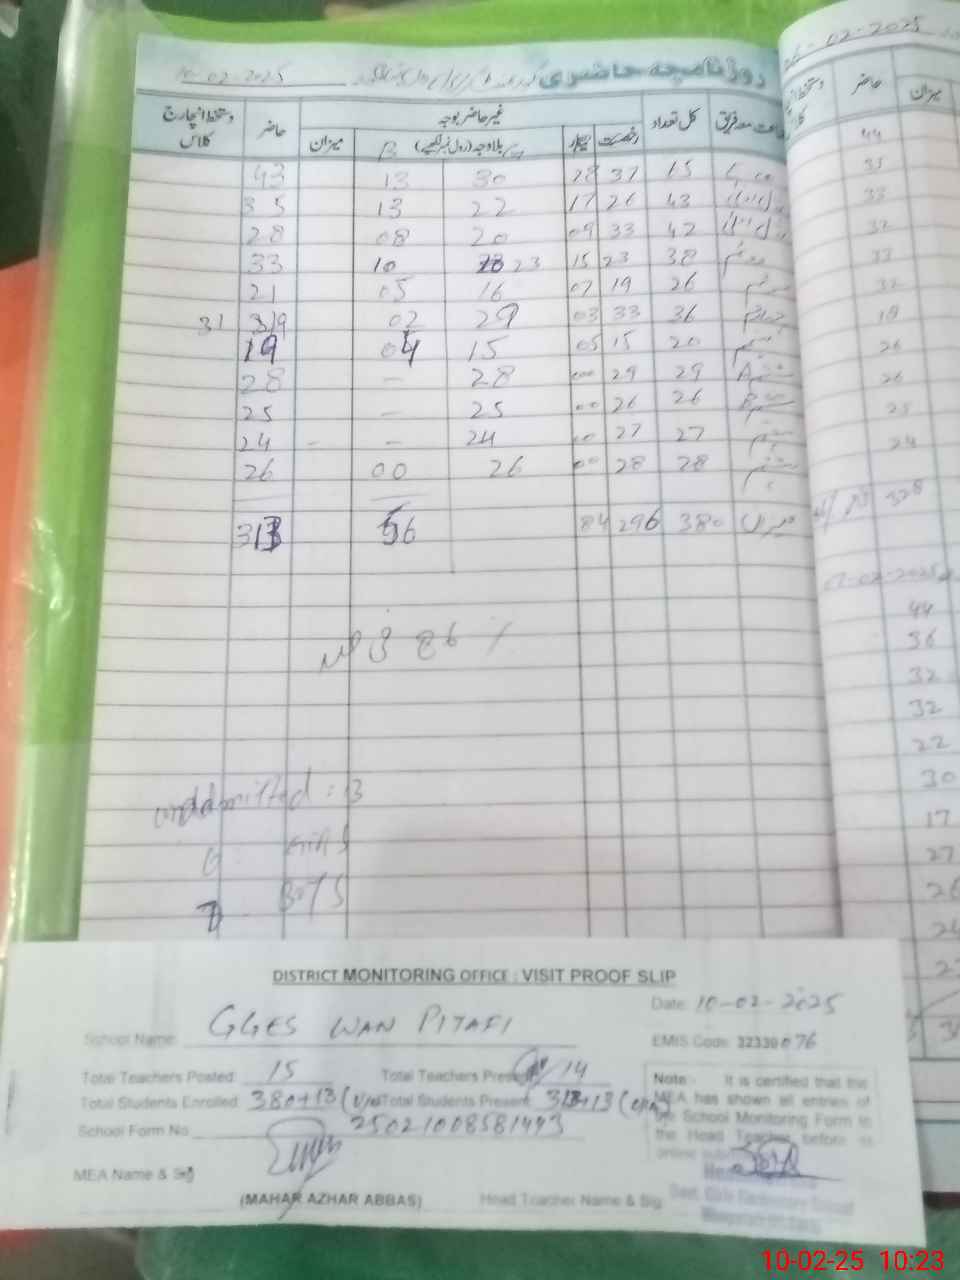 روزنامچہ حاضری 10-02-2025
کل تعداد رخصت بیمار غیر حاضر بوجہ میزان حاضر دستخط انچارج کلاس
بلاوجہ (رول نمبر لکھیے) B
15 37 28 30 13 43
43 26 17 22 13 35
42 33 09 20 08 28
38 23 15 23 10 33
26 19 07 16 05 21
36 33 03 29 02 31
20 15 05 15 04 19
A 29 29 00 28 - 28
B 26 26 00 25 - 25
27 27 00 24 - - 24
28 28 00 26 00 26
میزان 380 296 84 56 313
86 %
unadmitted: 13
6 Girls
7 Boys
02-2025
حاضر میزان
44
35
33
32
33
32
18
26
26
25
24
328
07-02-2025
44
36
32
32
22
30
17
27
26
24
DISTRICT MONITORING OFFICE : VISIT PROOF SLIP
Date: 10-02-2025
School Name: GGES WAN PITAFI
EMIS Code: 32330076
Total Teachers Posted: 15 Total Teachers Present: 14
Total Students Enrolled: 380+13 (U/A) Total Students Present: 313+13 (U/A)
School Form No 25021008581443
Note:- It is certified that the MEA has shown all entries of the School Monitoring Form to the Head Teacher before
MEA Name & Sig
(MAHAR AZHAR ABBAS) Head Teacher Name & Sig
Govt. Girls Elementary School
10-02-25 10:23